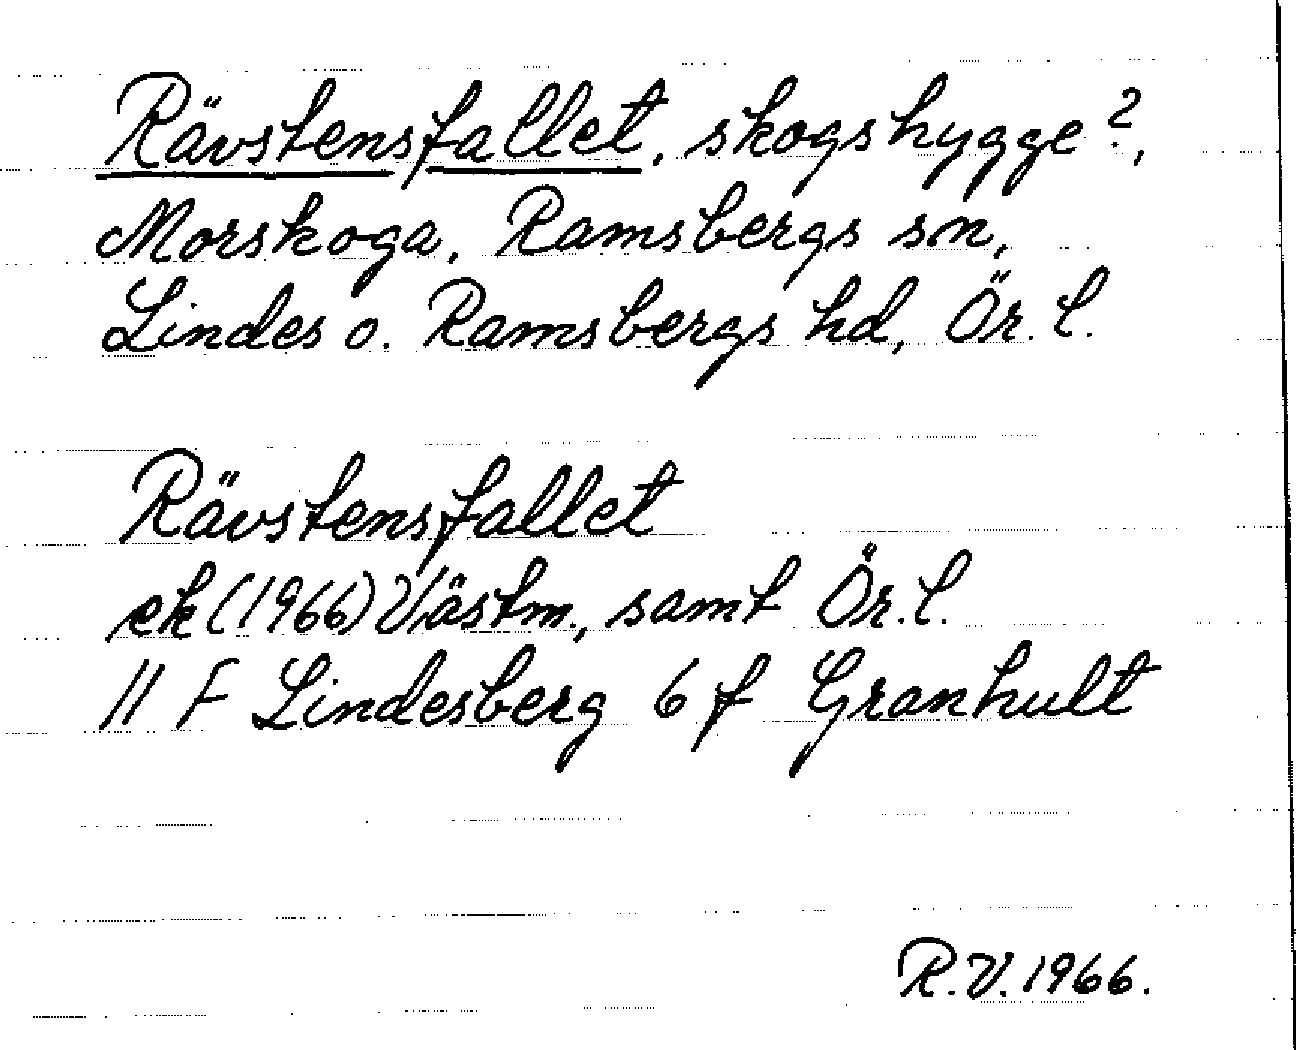 Rävstensfallet, skogshygge?,
Morskoga, Ramsbergs sn,
Lindes o. Ramsbergs hd, Ör. l.
Rävstensfallet
ek (1966) Västm., samt Ör. l.
11 F Lindesberg 6 f Granhult
R.V. 1966.